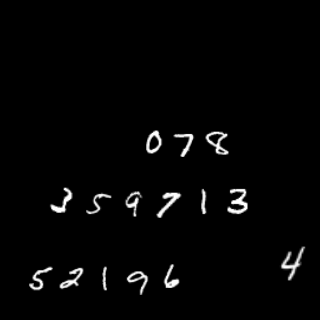 078
359713
52196 4